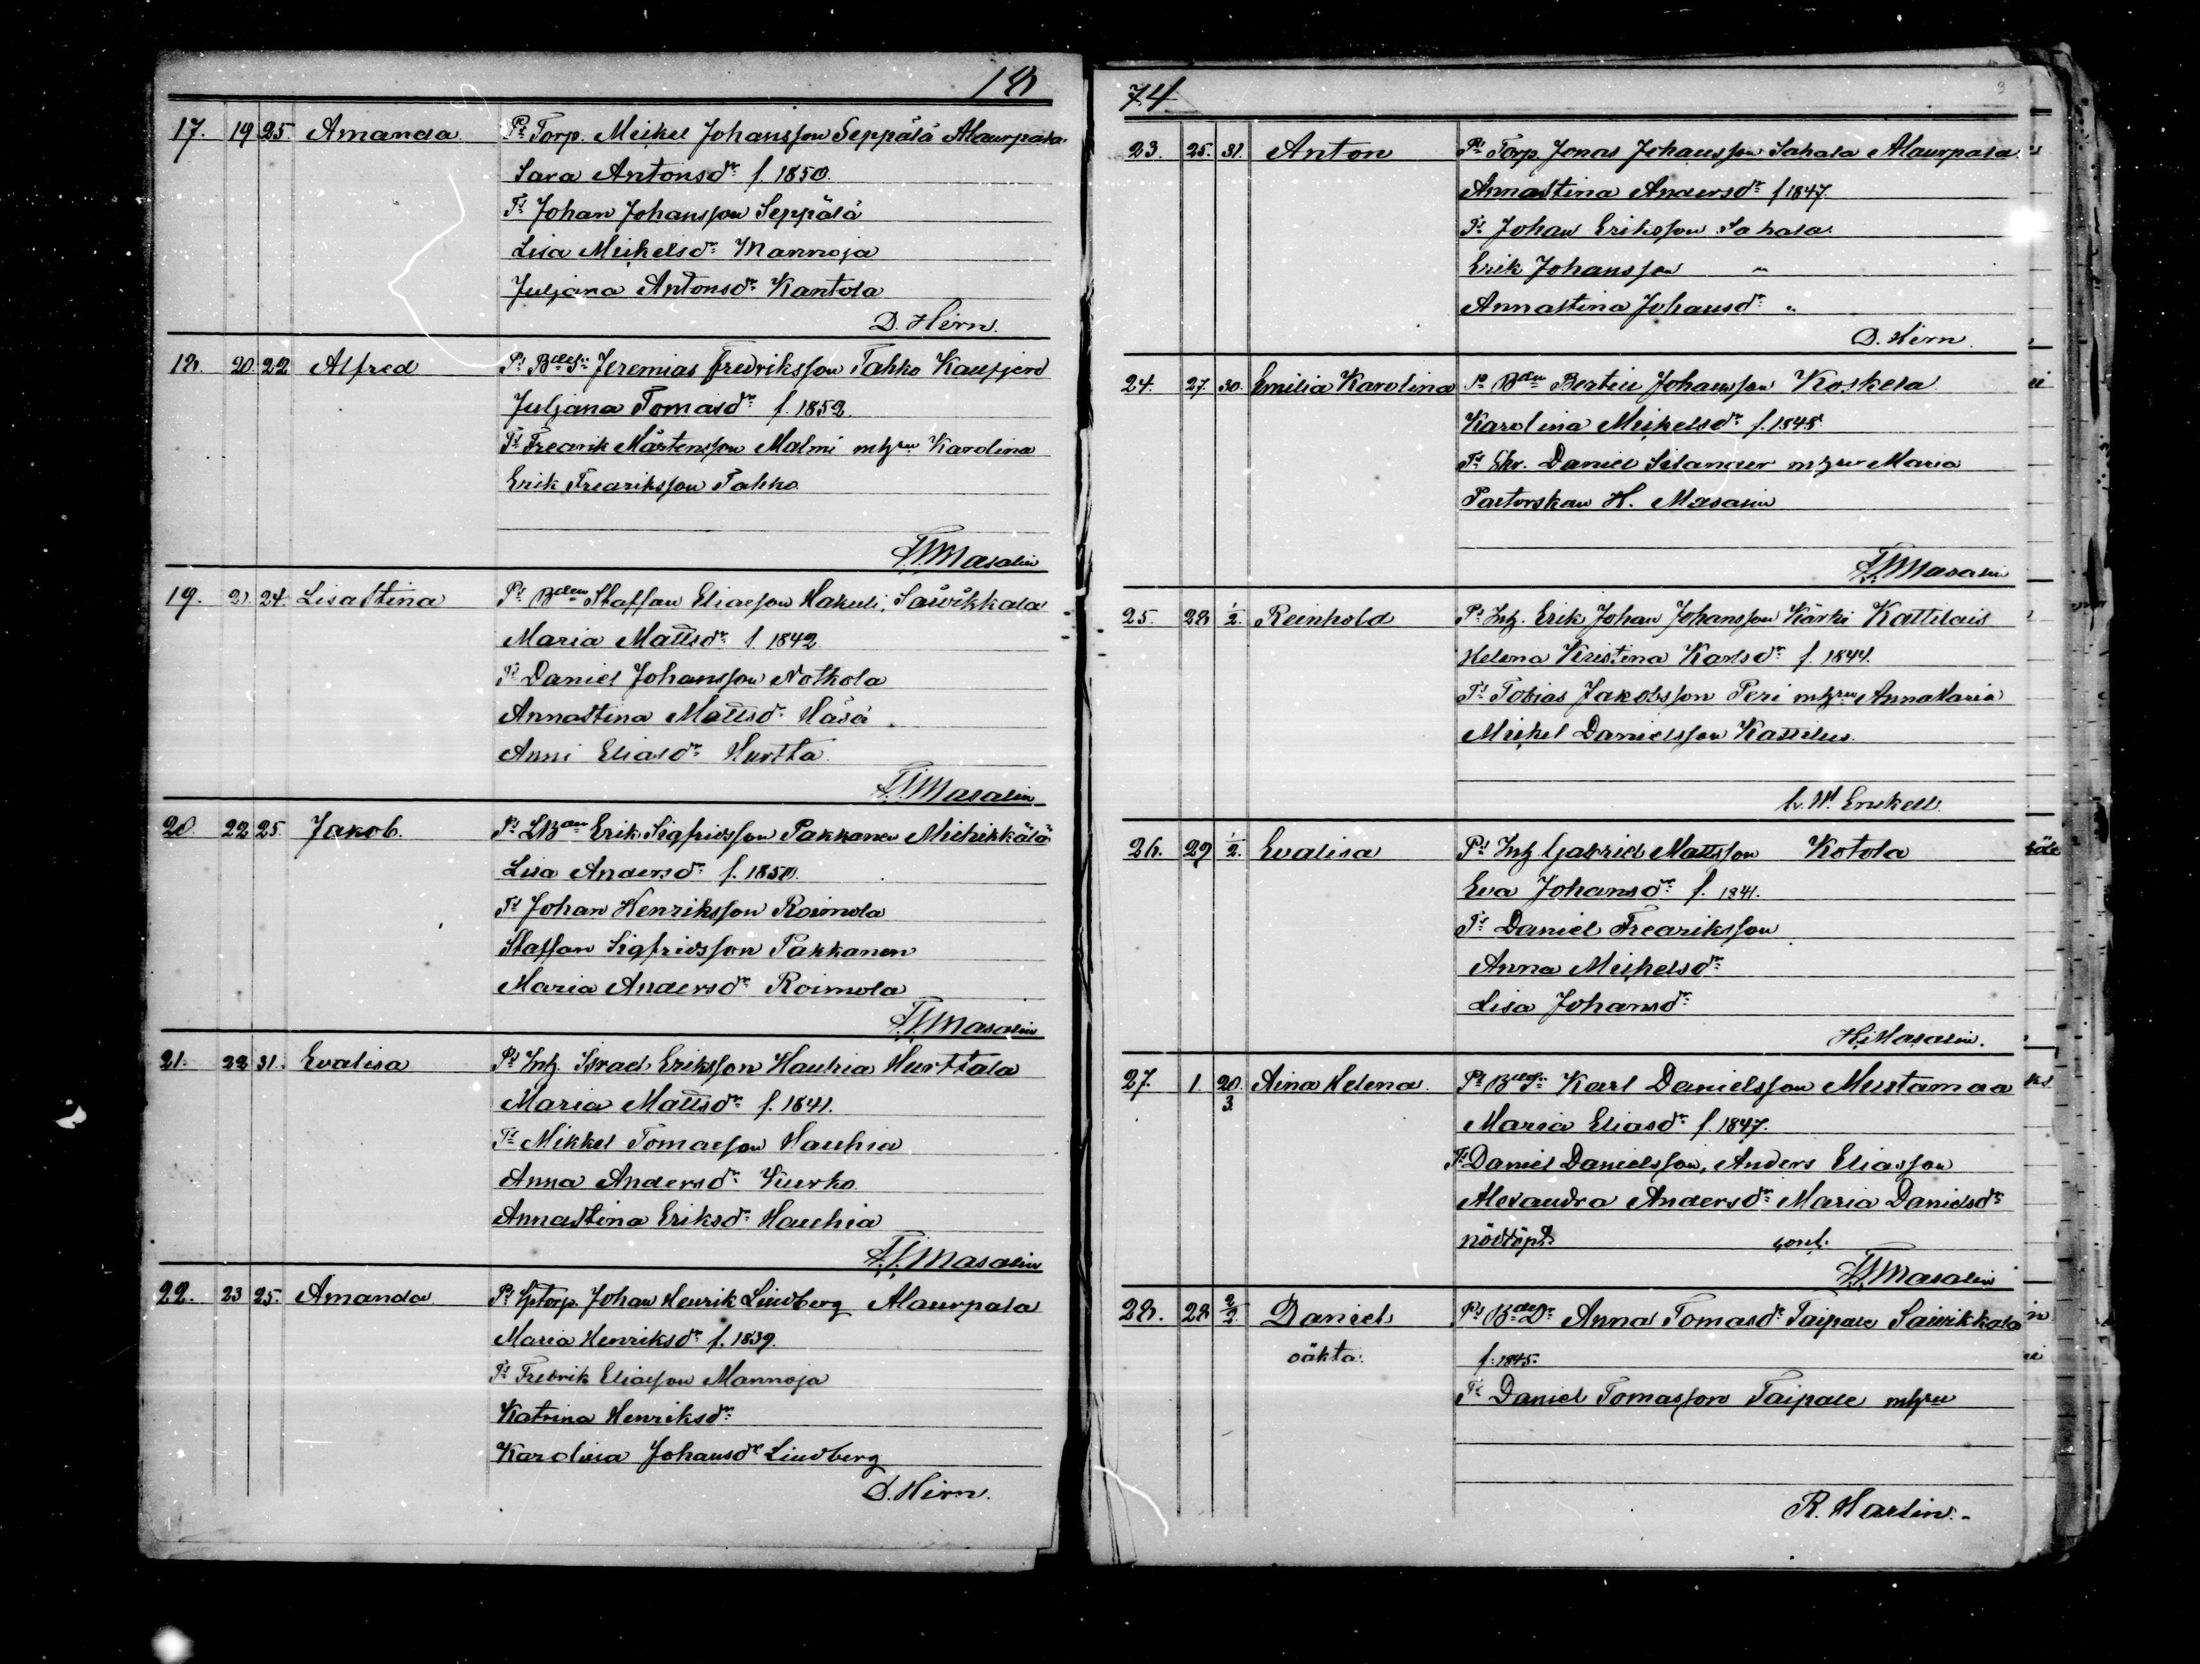 18
17. 19 25. Amanda Ps Torp. Mickel Johansson Seppälä Alaurpala
Sara Antonsdr f. 1850.
Ts Johan Johansson Seppälä
Lisa Mickelsdr Mannoja
Juljana Antonsdr Kantola
D. Hirn.
18. 20. 22 Alfred Ps Bdesn Jeremias Fredriksson Tahko
Juljana Tomasdr f. 1852.
Ts Fredrik Mårtensson Malmi mhru Karolina
Erik Fredriksson Tahko
Masalin
19. 21. 24. Lisastina Ps Bden Staffan Eliasson Hakuli, Säirikkala
Maria Mattsdr f. 1842
Ts Daniel Johansson Notkola
Annastina Mattsdr Häsä
Anni Eliasdr Hurtta
Masalin
20 22 25. Jakob. Ps LBden Erik Sigfridsson Pakkanen
Lisa Andersdr f. 1850.
Ts Johan Henriksson Roimola
Staffan Sigfridsson Pakkanen
Maria Andersdr Roimola
Masalin
21. 22 31. Evalisa Ps Inh. Israel Eriksson Hauhia Hurttala
Maria Mattsdr f. 1841.
Ts Mikkel Tomasson Hauhia
Anna Andersdr
Annastina Eriksdr Hauhia
Masalin
22. 23 25. Amanda Ps Johan Henrik Lindberg Alaurpala
Maria Henriksdr f. 1839.
Ts Fredrik Eliasson Mannoja
Katrina Henriksdr
Karolina Johansdr Lindberg
D. Hirn.
74
23. 25. 31. Anton Ps Torp. Jonas Johansson Sahala Alaurpala
Annastina Andersdr f 1847.
Ts Johan Eriksson Sahala.
Erik Johansson "
Annastina Johansdr "
D. Hirn.
24. 27 30. Emilia Karolina Ps Bden Bertil Johansson Koskela
Karolina Mickelsdr f. 1848
Ts Daniel Selander mhru Maria
Pastorskan H. Masalin
Masalin
25. 28 1/2. Reinhold Ps Inh. Erik Johan Johansson Kärki Kattelais
Helena Kristina Karlsdr f. 1844.
Ts Tobias Jakobsson Peri mhru Anna Maria
Mickel Danielsson Kattelus.
Enckell
26. 29 1/2. Evalisa Ps Inh Gabriel Mattsson Kotola
Eva Johansdr f. 1841.
Ts Daniel Fredriksson
Anna Mickelsdr
Lisa Johansdr
H. Masalin.
27. 1. 20. 3. Aina Helena. Ps Bdesn Karl Danielsson Mustamaa
Maria Eliasdr f. 1847.
Ts Daniel Danielsson, Anders Eliasson
Alexandra Andersdr Maria Danielsdr
nöddöpt
Masalin
28. 28 2/2. Daniel Ps BdeDr Anna Tomasdr Taipale Säirikkala
oäkta. f. 1845.
Ts Daniel Tomasson Taipale mhru
R. Hartin.